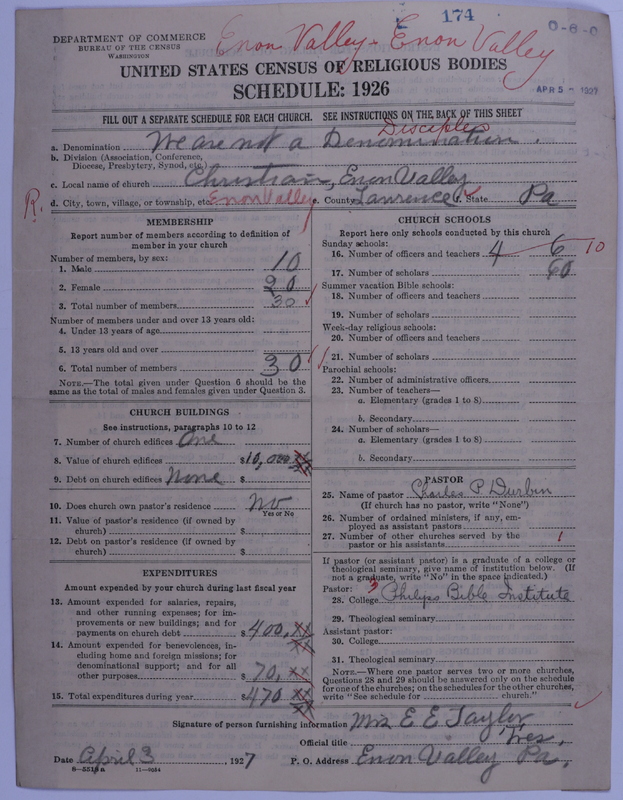 174
O-6-0
Enon Valley - Enon Valley
DEPARTMENT OF COMMERCE
BUREAU OF THE CENSUS
WASHINGTON
UNITED STATES CENSUS OF RELIGIOUS BODIES
SCHEDULE: 1926
APR 5 - 1927
FILL OUT A SEPARATE SCHEDULE FOR EACH CHURCH. SEE INSTRUCTIONS ON THE BACK OF THIS SHEET
Disciples
a. Denomination We are not a Denomination.
b. Division (Association, Conference, Diocese, Presbytery, Synod, etc.)
c. Local name of church Christian, Enon Valley
R. d. City, town, village, or township, etc. Enon Valley e. County Lawrence f. State Pa
MEMBERSHIP
Report number of members according to definition of
member in your church
Number of members, by sex:
1. Male 10
2. Female 20
3. Total number of members 30
Number of members under and over 13 years old:
4. Under 13 years of age
5. 13 years old and over
6. Total number of members 30
NOTE.—The total given under Question 6 should be the
same as the total of males and females given under Question 3.
CHURCH BUILDINGS
See instructions, paragraphs 10 to 12
7. Number of church edifices One
8. Value of church edifices $10,000 xx
9. Debt on church edifices None $
10. Does church own pastor's residence No
Yes or No
11. Value of pastor's residence (if owned by
church) $
12. Debt on pastor's residence (if owned by
church) $
EXPENDITURES
Amount expended by your church during last fiscal year
13. Amount expended for salaries, repairs,
and other running expenses; for im-
provements or new buildings; and for
payments on church debt $400.xx
14. Amount expended for benevolences, in-
cluding home and foreign missions; for
denominational support; and for all
other purposes $70.xx
15. Total expenditures during year $470 xx
CHURCH SCHOOLS
Report here only schools conducted by this church
Sunday schools:
16. Number of officers and teachers 4 6 10
17. Number of scholars 60
Summer vacation Bible schools:
18. Number of officers and teachers
19. Number of scholars
Week-day religious schools:
20. Number of officers and teachers
21. Number of scholars
Parochial schools:
22. Number of administrative officers
23. Number of teachers—
a. Elementary (grades 1 to 8)
b. Secondary
24. Number of scholars—
a. Elementary (grades 1 to 8)
b. Secondary
PASTOR
25. Name of pastor Charles P Durbin
(If church has no pastor, write "None")
26. Number of ordained ministers, if any, em-
ployed as assistant pastors
27. Number of other churches served by the
pastor or his assistants 1
If pastor (or assistant pastor) is a graduate of a college or
theological seminary, give name of institution below. (If
not a graduate, write "No" in the space indicated.)
Pastor: 3
28. College Philips Bible Institute
29. Theological seminary
Assistant pastor:
30. College
31. Theological seminary
NOTE.—Where one pastor serves two or more churches,
Questions 28 and 29 should be answered only on the schedule
for one of the churches; on the schedules for the other churches,
write "See schedule for church."
Signature of person furnishing information Mrs E E Taylor
Official title Tres.
Date April 3, 1927 P. O. Address Enon Valley Pa.
8—5519a 11—9054